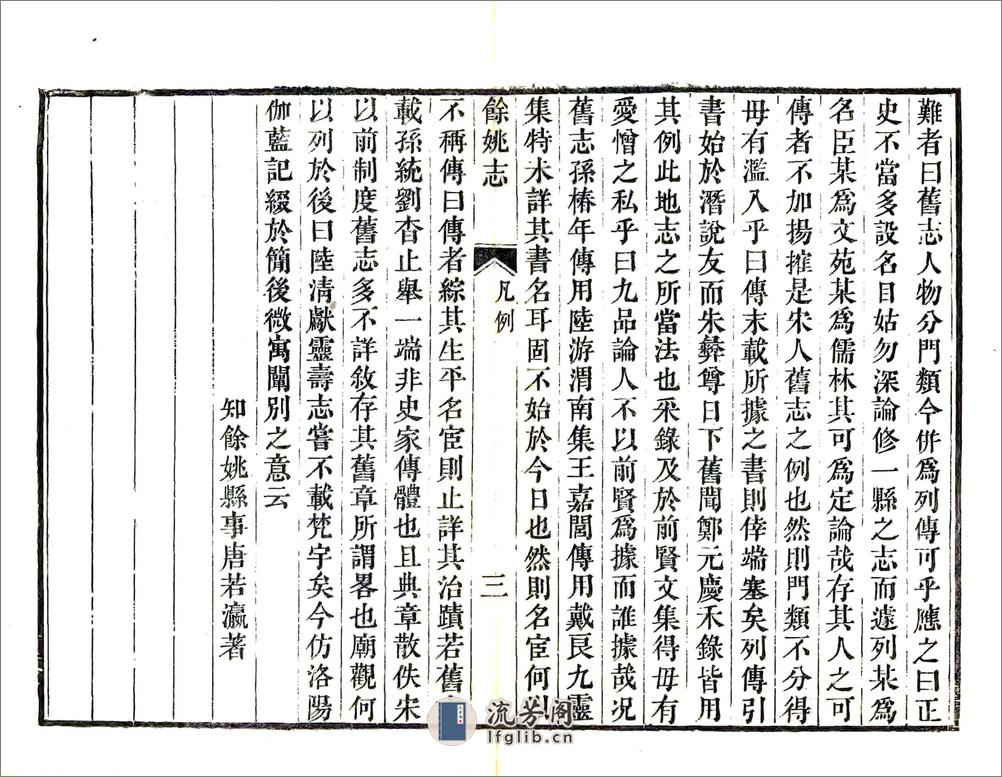 難者曰舊志人物分門類今併爲列傳可乎應之曰正
史不當多設名目姑勿深論修一縣之志而遽列某爲
名臣某爲文苑某爲儒林其可爲定論哉存其人之可
傳者不加揚搉是宋人舊志之例也然則門類不分得
毋有濫入乎曰傳末載所據之書則倖端塞矣列傳引
書始於潛說友而朱彝尊日下舊聞鄭元慶禾錄皆用
其例此地志之所當法也采錄及於前賢文集得毋有
愛憎之私乎曰九品論人不以前賢爲據而誰據哉况
舊志孫椿年傳用陸游渭南集王嘉閭傳用戴良九靈
集特未詳其書名耳固不始於今日也然則名宦何以
餘姚志
凡例
三
不稱傳曰傳者綜其生平名宦則止詳其治蹟若舊
載孫統劉杳止舉一端非史家傳體也且典章散佚宋
以前制度舊志多不詳敘存其舊章所謂畧也廟觀何
以列於後曰陸清獻靈壽志嘗不載梵宇矣今仿洛陽
伽藍記綴於簡後微寓闢別之意云
知餘姚縣事唐若瀛著
流芳阁
lfglib.cn